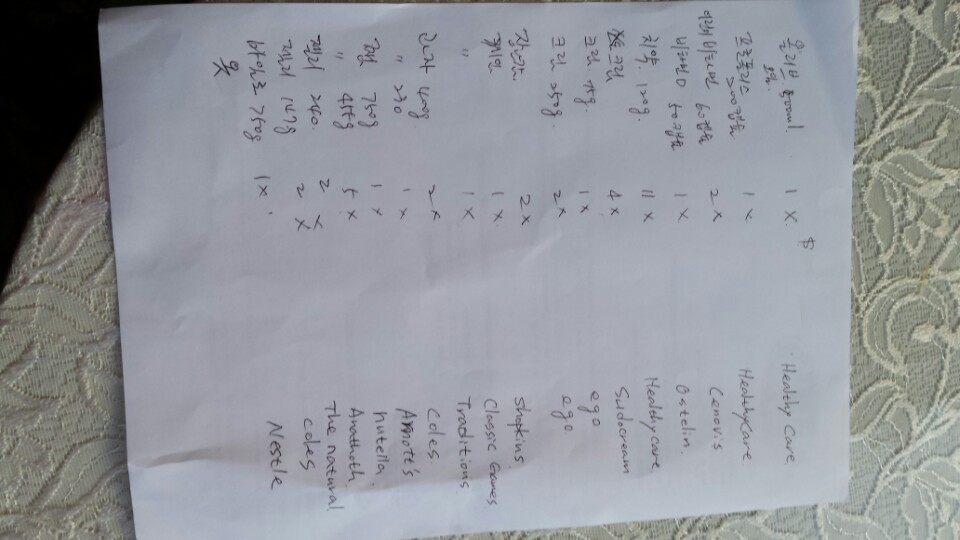 $
1 X. Healthy Care
프로폴리스 200캡슐 1 X Healthycare
비타민 60캡슐 2 X Cenovis
비타민D 캡슐 1 X Ostelin
치약. 120g. 11 X Healthycare
크림 4 X Sudocream
크림 1 X ego
크림 250g. 2 X ego
장난감 2 X Shopkins
게임 1 X Classic Games
" 1 X Traditions
과자 400g. 2 X Coles.
" 1 X Arnott's
잼 750g 1 X nutella.
" 5 X Anathoth.
젤리 240. 2 X The natural
젤리 2 X coles
750g 1 X. Nestle